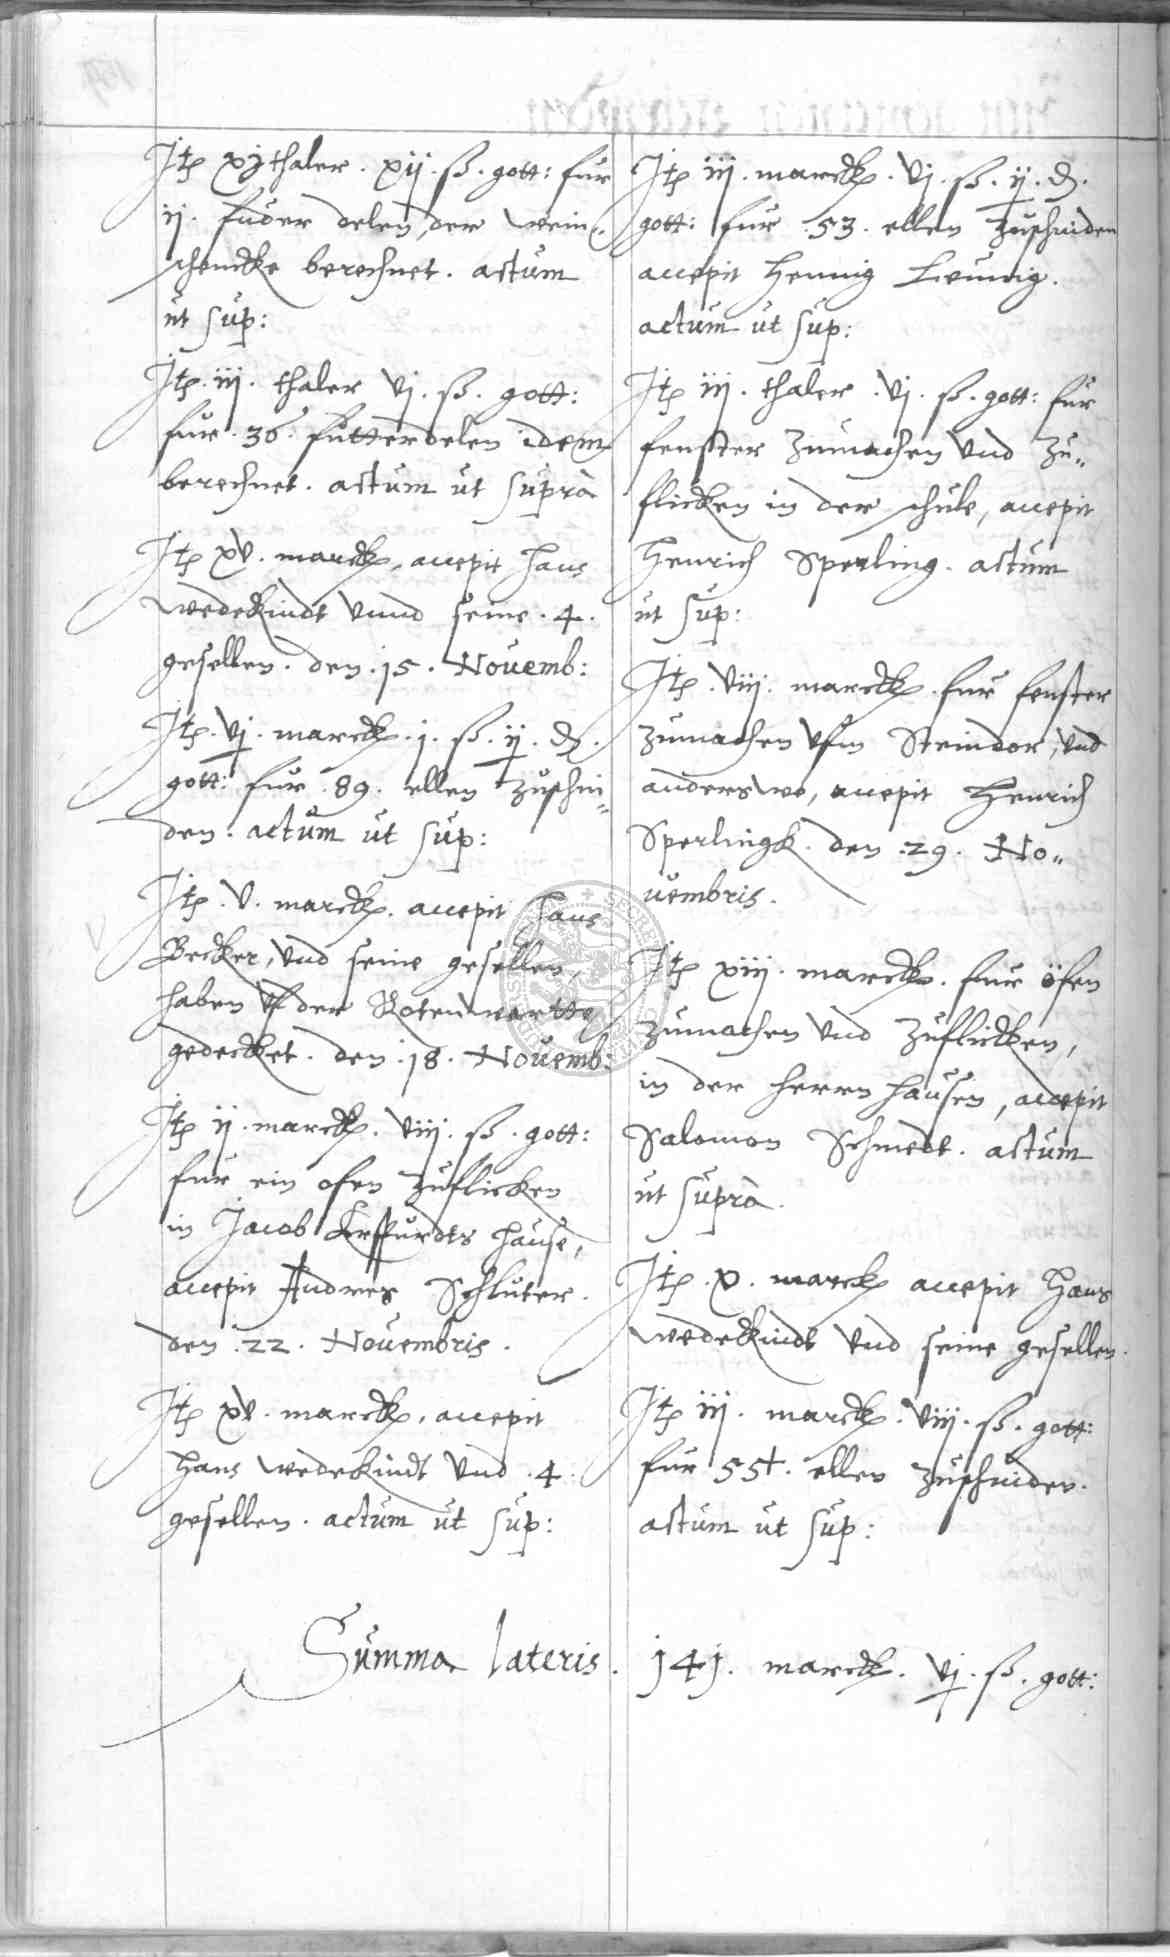 Itē xj thaler . xij . ß . gott: fur
ij . fuder delen, der wein-
schencke berechnet . actum
ut sup:
Itē . iij . thaler vj . ß . gott:
fur . 36 . futterdelen idem
berechnet . actum ut suprà
Itē xv . marck, accepit Hans
Wedekindt vnnd seine . 4 .
gesellen . den . 15 . Novemb:
Itē . vj . marck . j . ß . ij . ₰ .
gott: fur . 89 . ellen zuschni„
den . actum ut sup:
Itē . v . marck . accepit Hans
Becker, vnd seine gesellen,
haben vf der Rotenwartte
gedecket . den . 18 . Novemb:
Itē ij . marck . viij . ß . gott:
fur ein ofen zuflicken
in Jacob Erffurdts hause,
accepit Andres Schluter .
den . 22 . Novembris .
Itē xv . marck, accepit
Hans Wedekindt vnd . 4 .
gesellen . actum ut sup:
Itē iij . marck . vj . ß . ij . ₰ .
gott: fur . 53 . ellen zuschniden
accepit Hennig .
actum ut sup:
Itē iij . thaler . vj . ß . gott: fur
fenster zumachen vnd zu„
flicken in der schule, accepit
Henrich Sperling . actum
ut sup:
Itē . viij . marck . fur fenster
zumachen vfm Steindor, vnd
anderswo, accepit Henrich
Sperlingk . den . 29 . No„
vembris .
Itē xiij . marck . fur öfen
zumachen vnd zuflicken,
in der Herrn hausen, accepit
Salomon Schmedt . actum
ut suprà .
Itē . x . marck accepit Hans
Wedekindt vnd seine gesellen .
Itē iij . marck . viij . ß . gott:
fur ellen zuschniden .
actum ut sup:
Summa lateris . 141 . marck . vj . ß . gott: